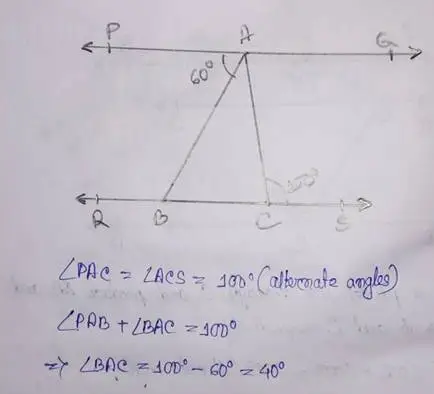 P A G
60°
100°
R B C S
∠PAC = ∠ACS = 100° (alternate angles)
∠PAB + ∠BAC = 100°
=> ∠BAC = 100° - 60° = 40°